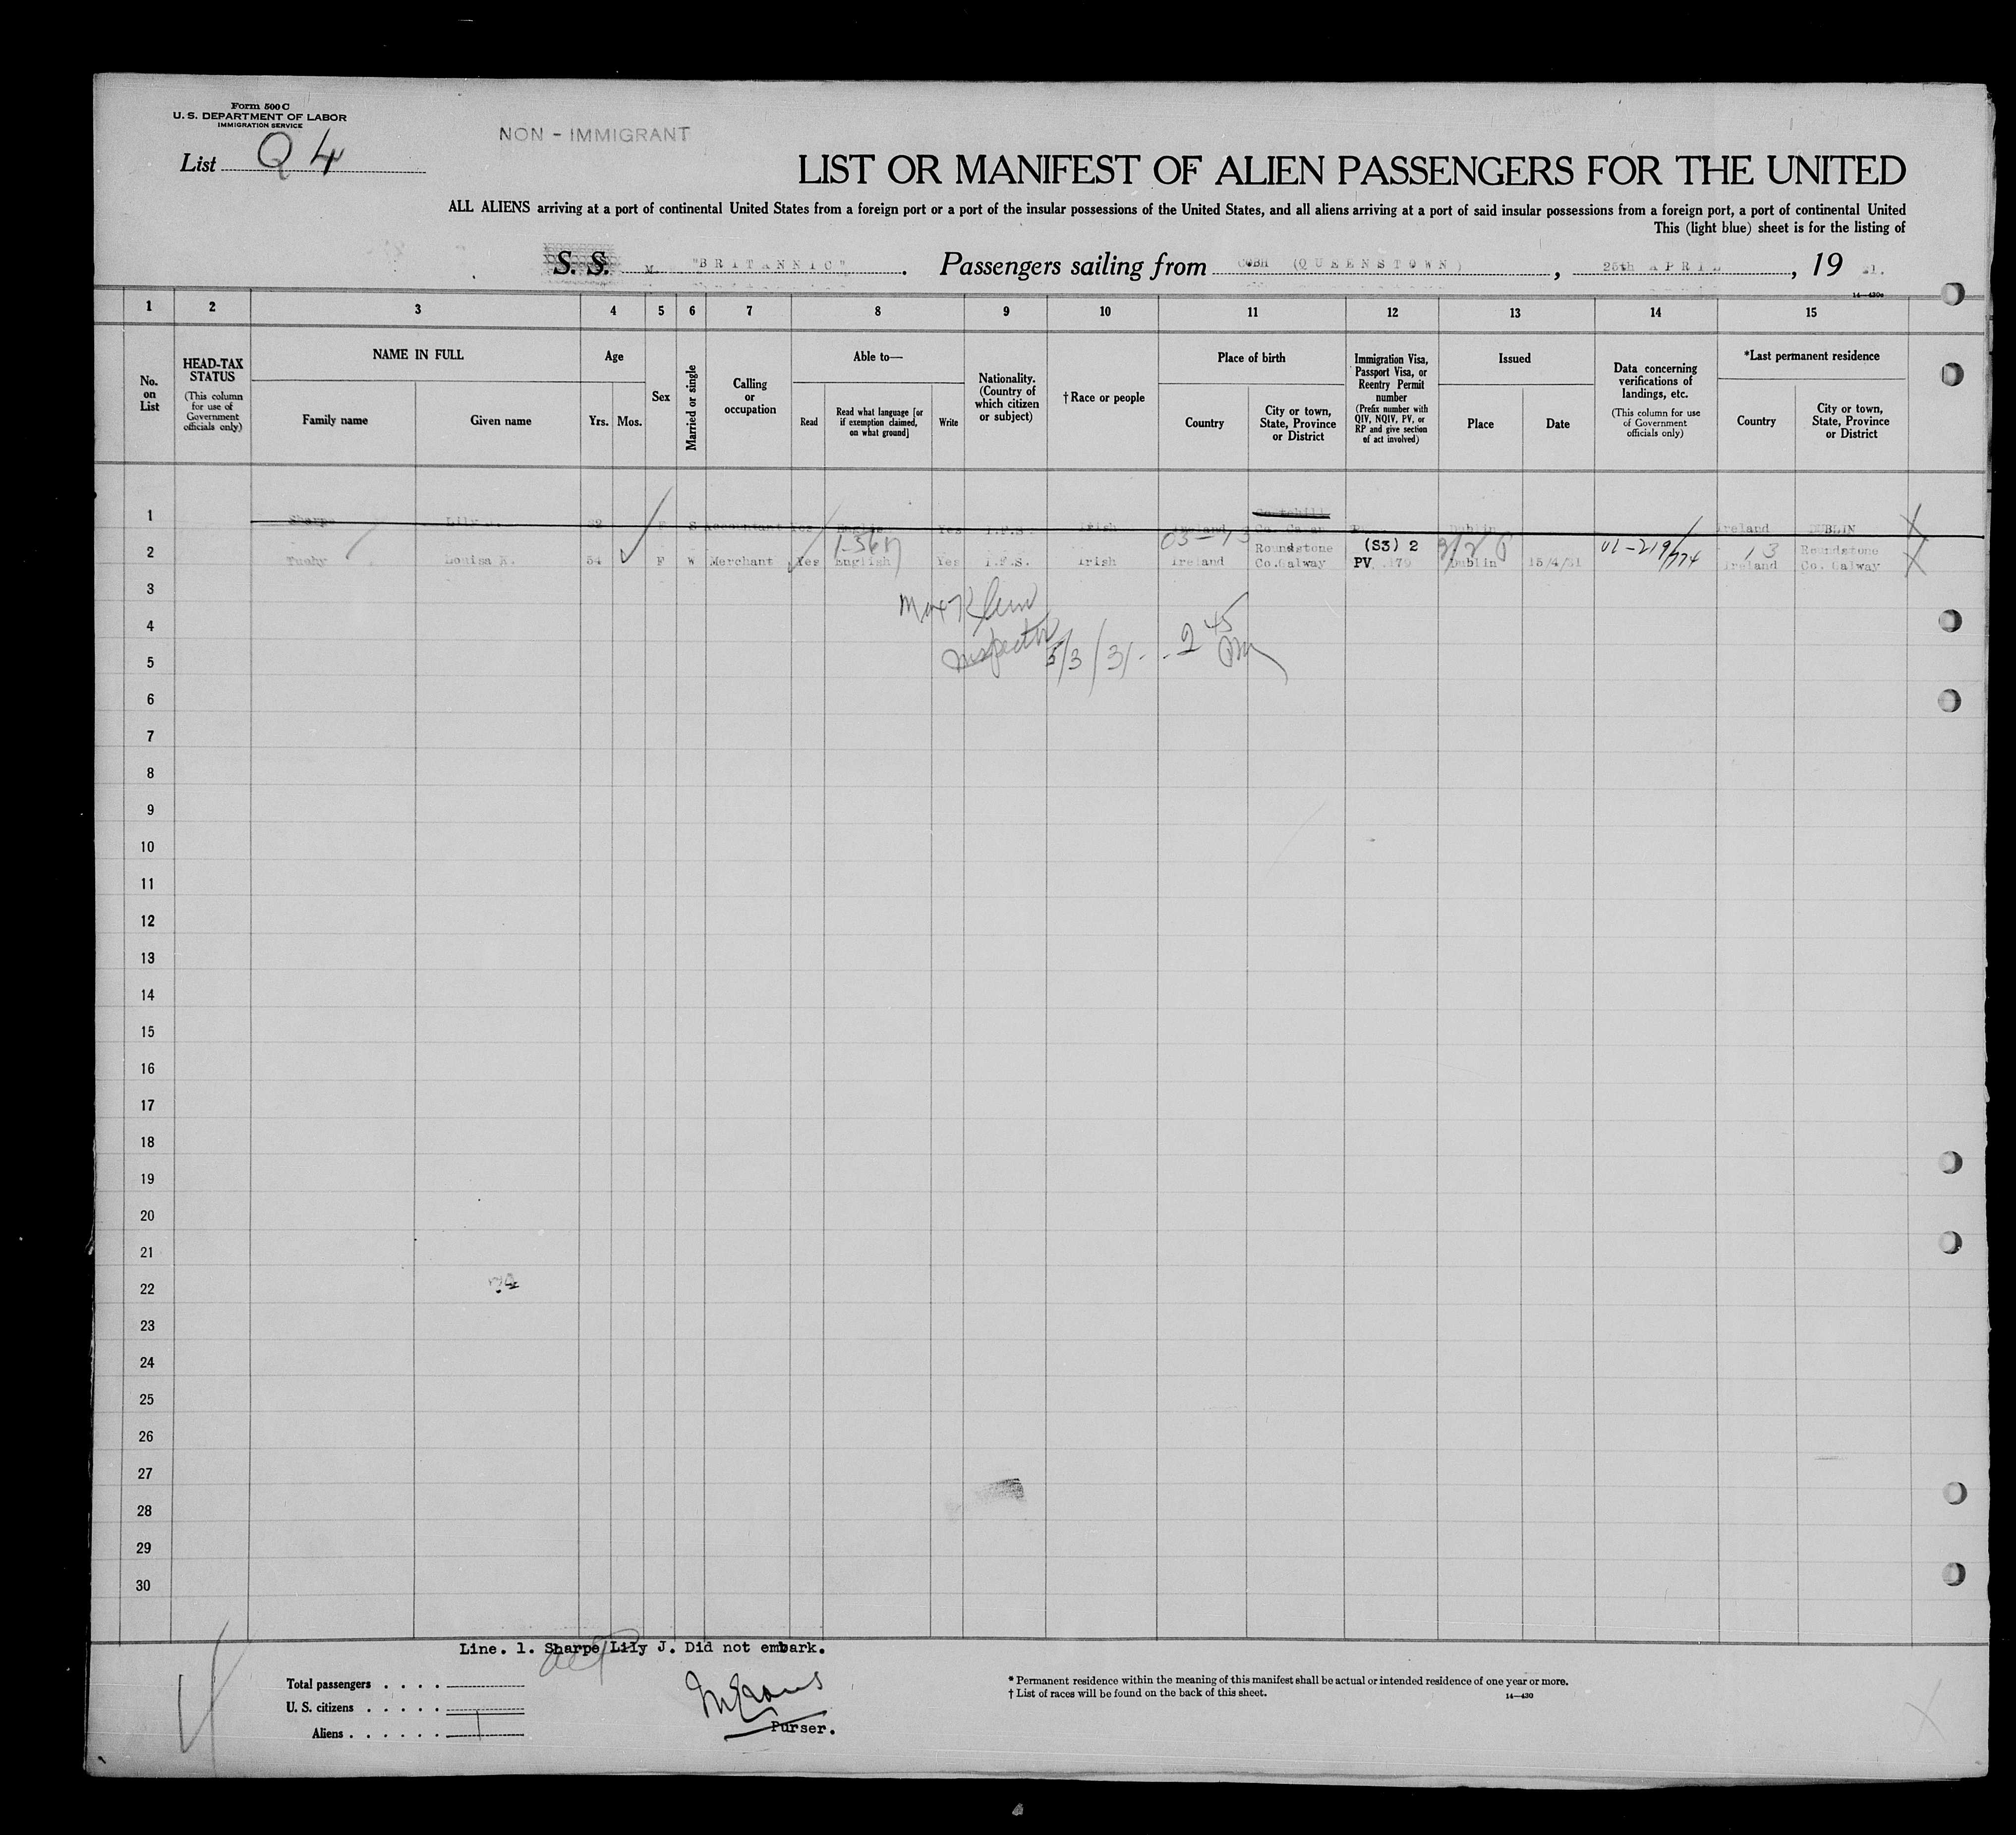 Form 500 C
U. S. DEPARTMENT OF LABOR
IMMIGRATION SERVICE
NON - IMMIGRANT
List Q 4
LIST OR MANIFEST OF ALIEN PASSENGERS FOR THE UNITED
ALL ALIENS arriving at a port of continental United States from a foreign port or a port of the insular possessions of the United States, and all aliens arriving at a port of said insular possessions from a foreign port, a port of continental United
This (light blue) sheet is for the listing of
S. S. M. "BRITANNIC". Passengers sailing from COBH (QUEENSTOWN), 25th APRIL, 19 31.
14—430a
1 2 3 4 5 6 7 8 9 10 11 12 13 14 15
No. on List
HEAD-TAX STATUS
(This column for use of Government officials only)
NAME IN FULL
Family name
Given name
Age
Yrs.
Mos.
Sex
Married or single
Calling or occupation
Able to—
Read
Read what language [or if exemption claimed, on what ground]
Write
Nationality. (Country of which citizen or subject)
† Race or people
Place of birth
Country
City or town, State, Province or District
Immigration Visa, Passport Visa, or Reentry Permit number
(Prefix number with QIV, NQIV, PV, or RP and give section of act involved)
Issued
Place
Date
Data concerning verifications of landings, etc.
(This column for use of Government officials only)
*Last permanent residence
Country
City or town, State, Province or District
1 Sharpe Lily J. F S Accountant Yes English Yes I.F.S. Irish Ireland Dublin Ireland DUBLIN
Roundstone (S3) 2 Roundstone
2 Louisa 54 F W Merchant Yes English Yes I.F.S. Irish Ireland Co.Galway PV 179 Dublin 15/4/31 Ireland Co. Galway
3
Max Klein
4
Inspector 5/3/31 - 2 45 PM
5
6
7
8
9
10
11
12
13
14
15
16
17
18
19
20
21
22
23
24
25
26
27
28
29
30
Line. 1. Sharpe Lily J. Did not embark.
Total passengers . . . .
U. S. citizens . . . . .
Aliens . . . . . . 1
Purser.
* Permanent residence within the meaning of this manifest shall be actual or intended residence of one year or more.
† List of races will be found on the back of this sheet.
14—430